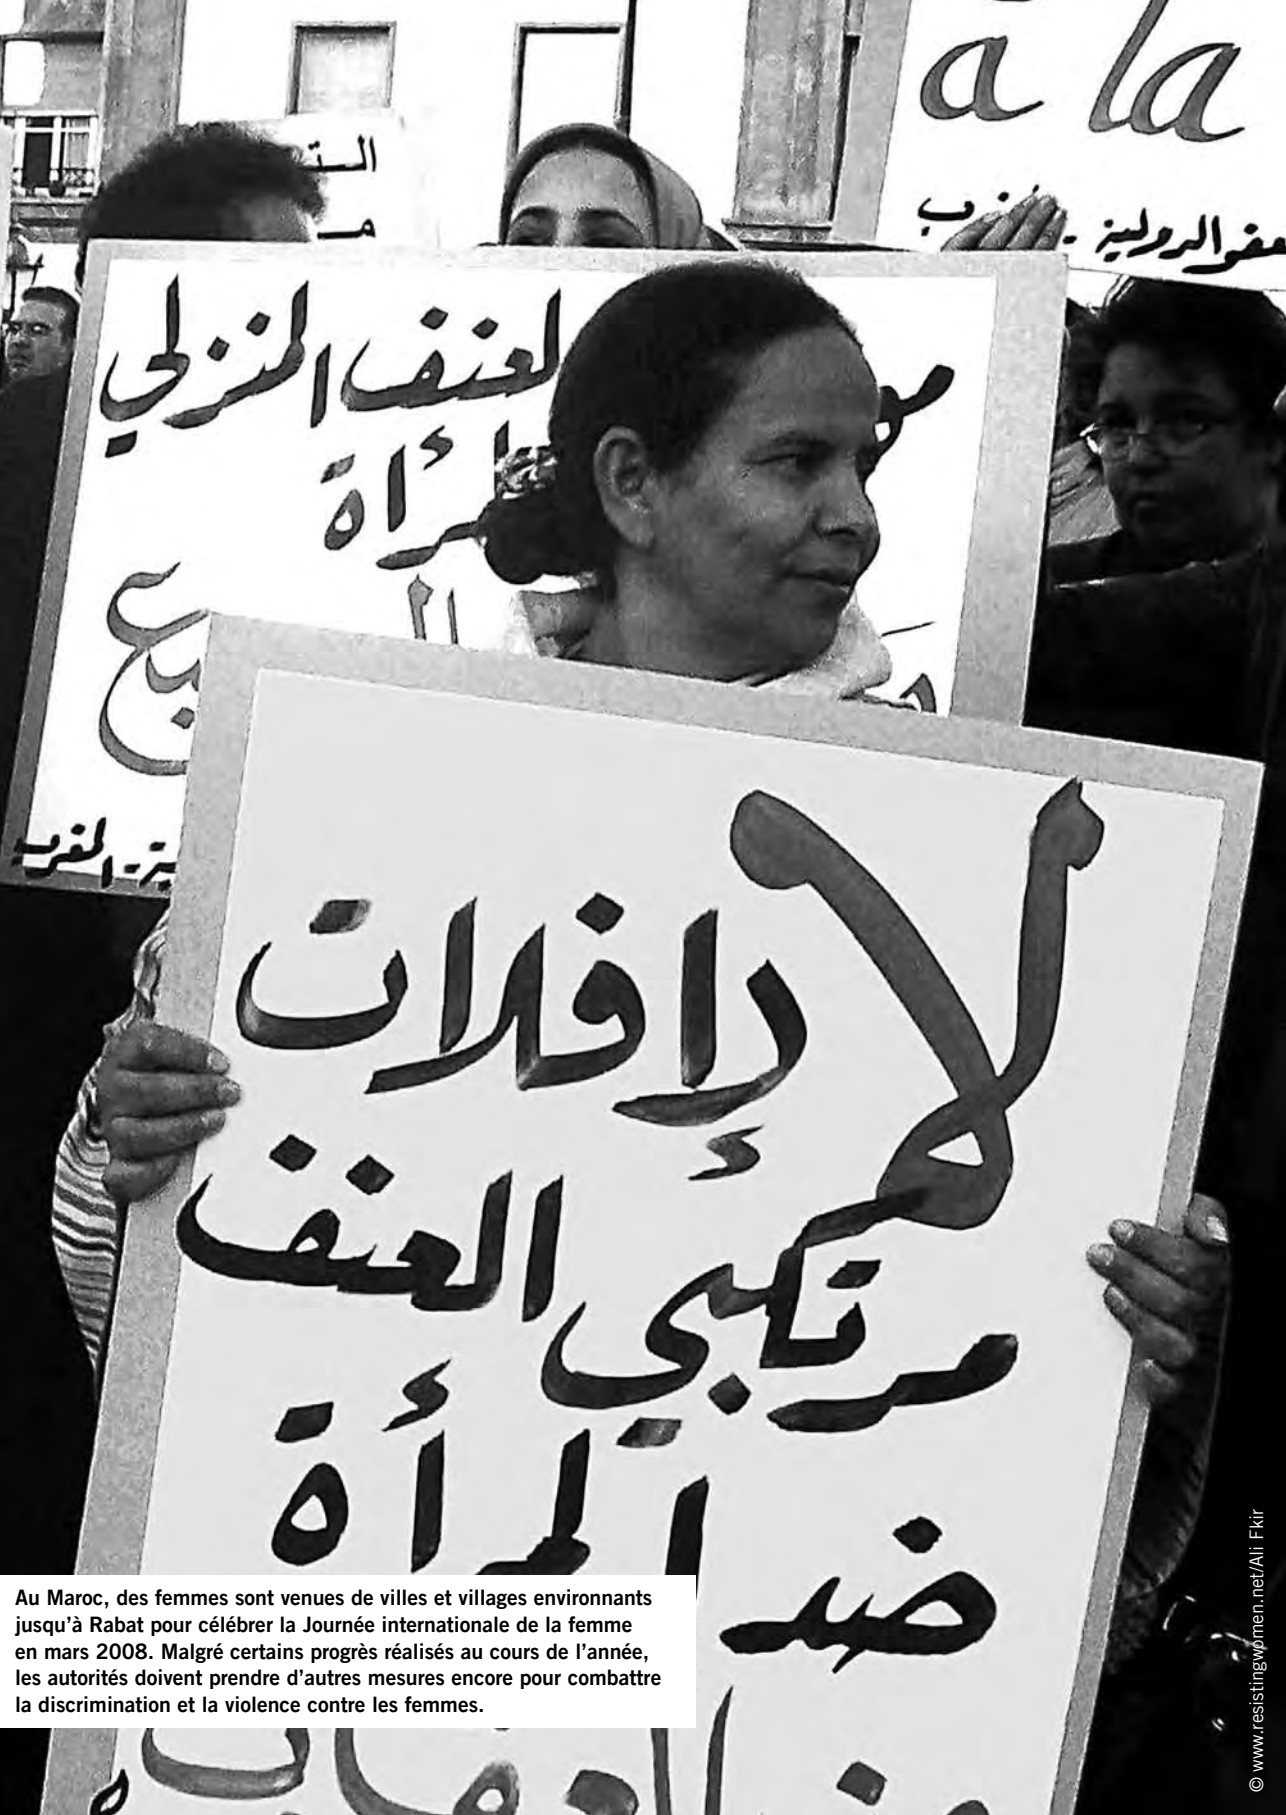 à la
الستـ
مـ
مغرب
عفو الدولية -
مو
لعنف المنزلي
مرأة
المغرب
ية -
لا
لإفلات
مرتكبي العنف
ضد المرأة
Au Maroc, des femmes sont venues de villes et villages environnants
jusqu’à Rabat pour célébrer la Journée internationale de la femme
en mars 2008. Malgré certains progrès réalisés au cours de l’année,
les autorités doivent prendre d’autres mesures encore pour combattre
la discrimination et la violence contre les femmes.
© www.resistingwomen.net/Ali Fkir